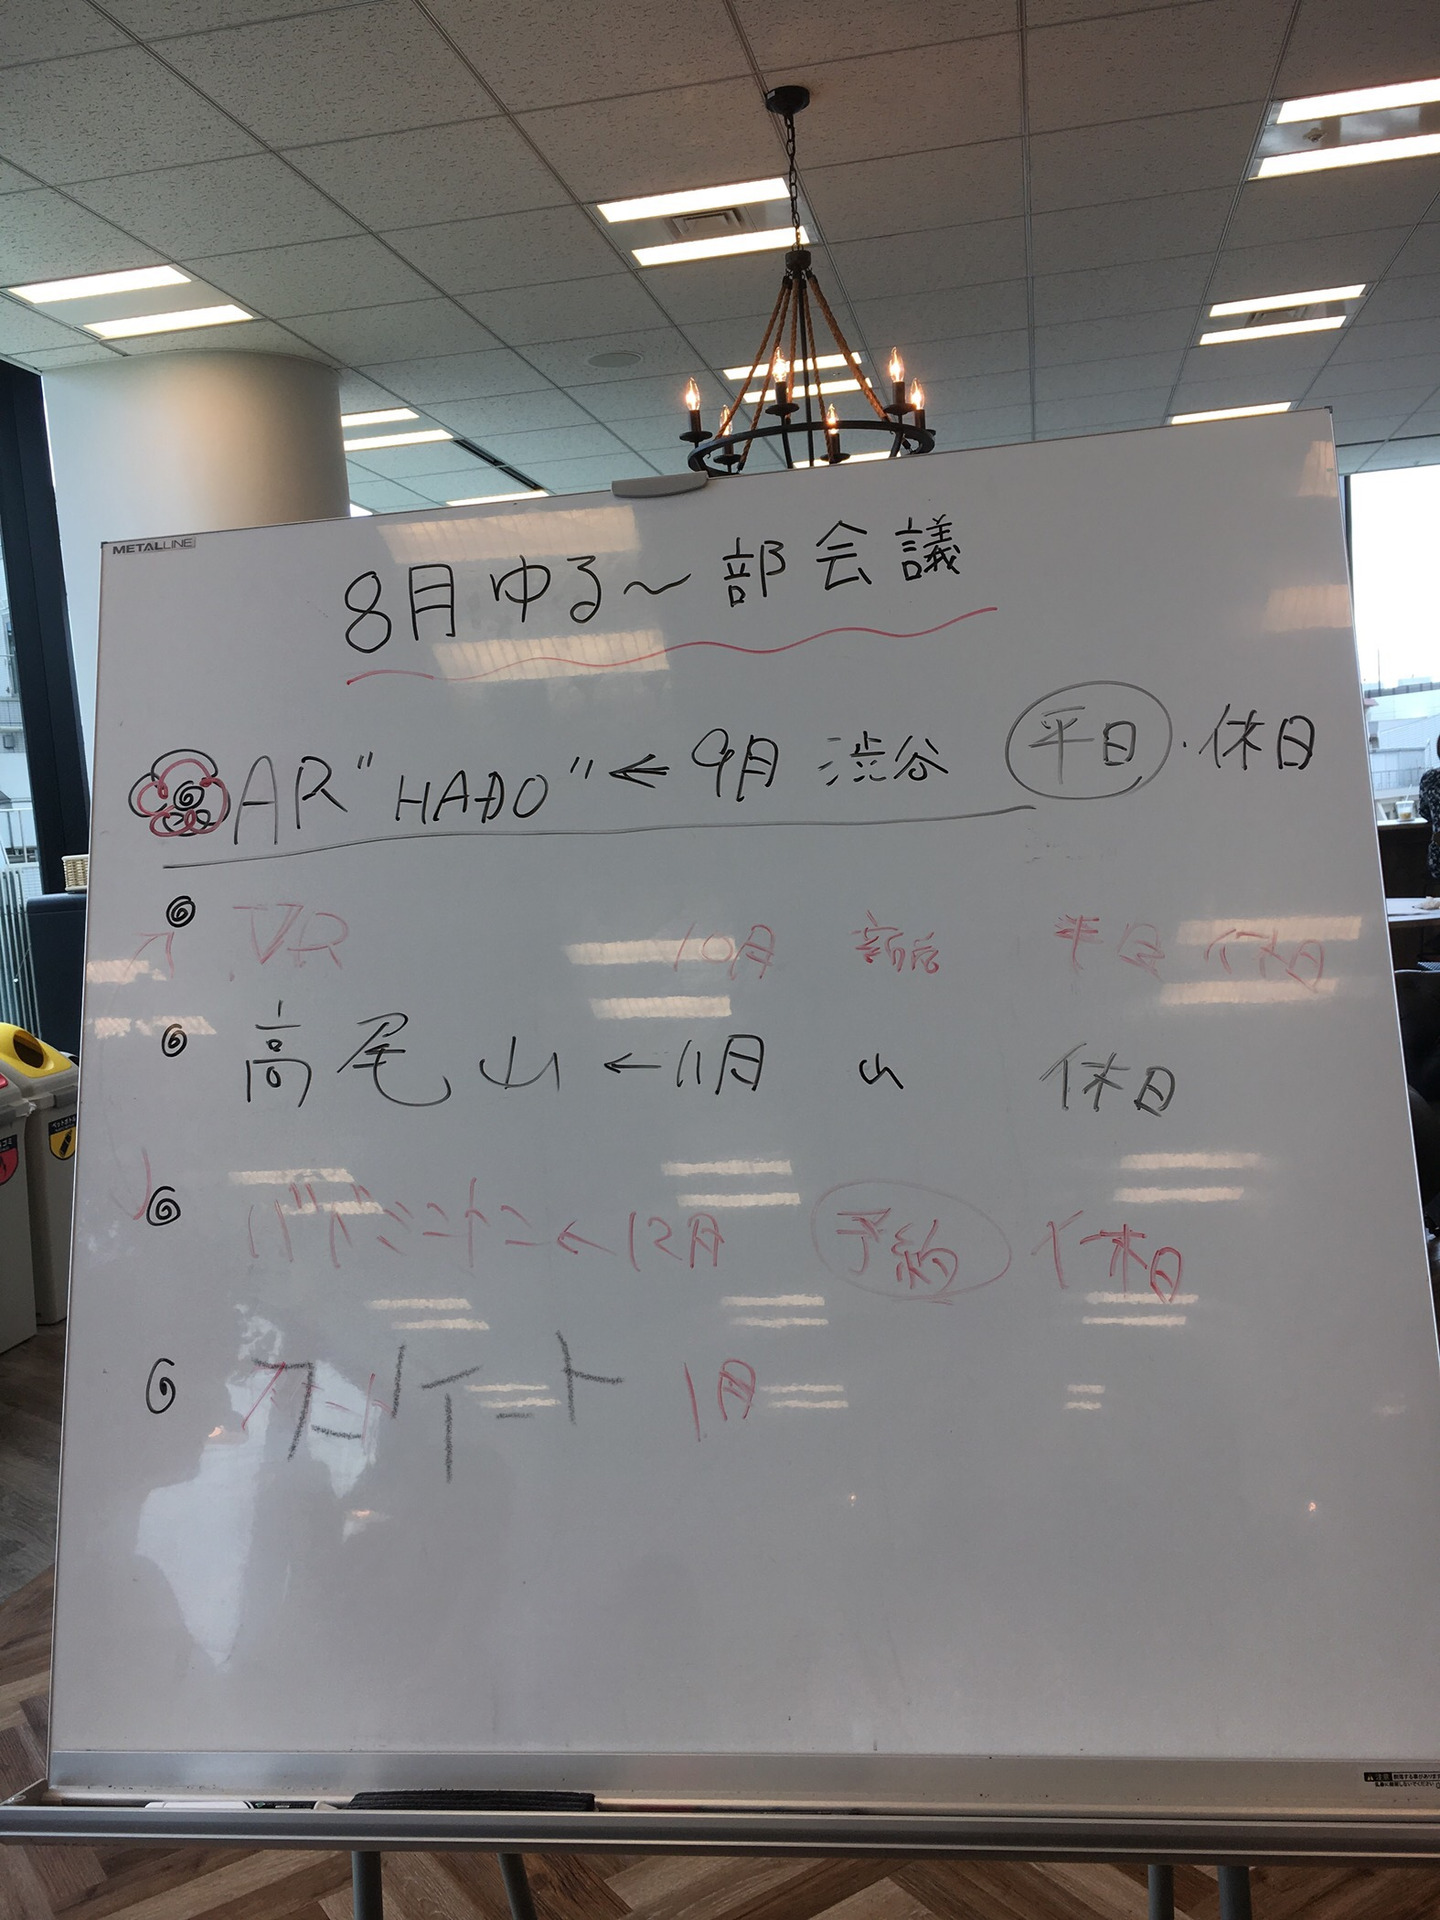 METALLINE
8月ゆる〜部会議
AR "HADO" ← 9月 渋谷 平日・休日
VR 10月 新宿 平日 休日
高尾山 ← 11月 山 休日
バドミントン ← 12月 予約 休日
1月